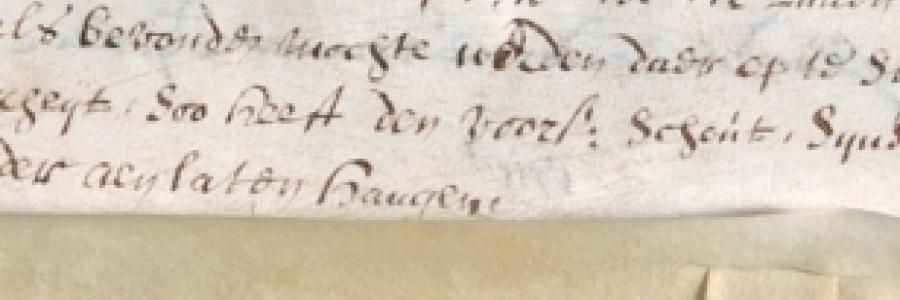 als bevonden mochte werden daer op te
scheijt. Soo heeft den voors: Schout, Synd
der aen laten hangen